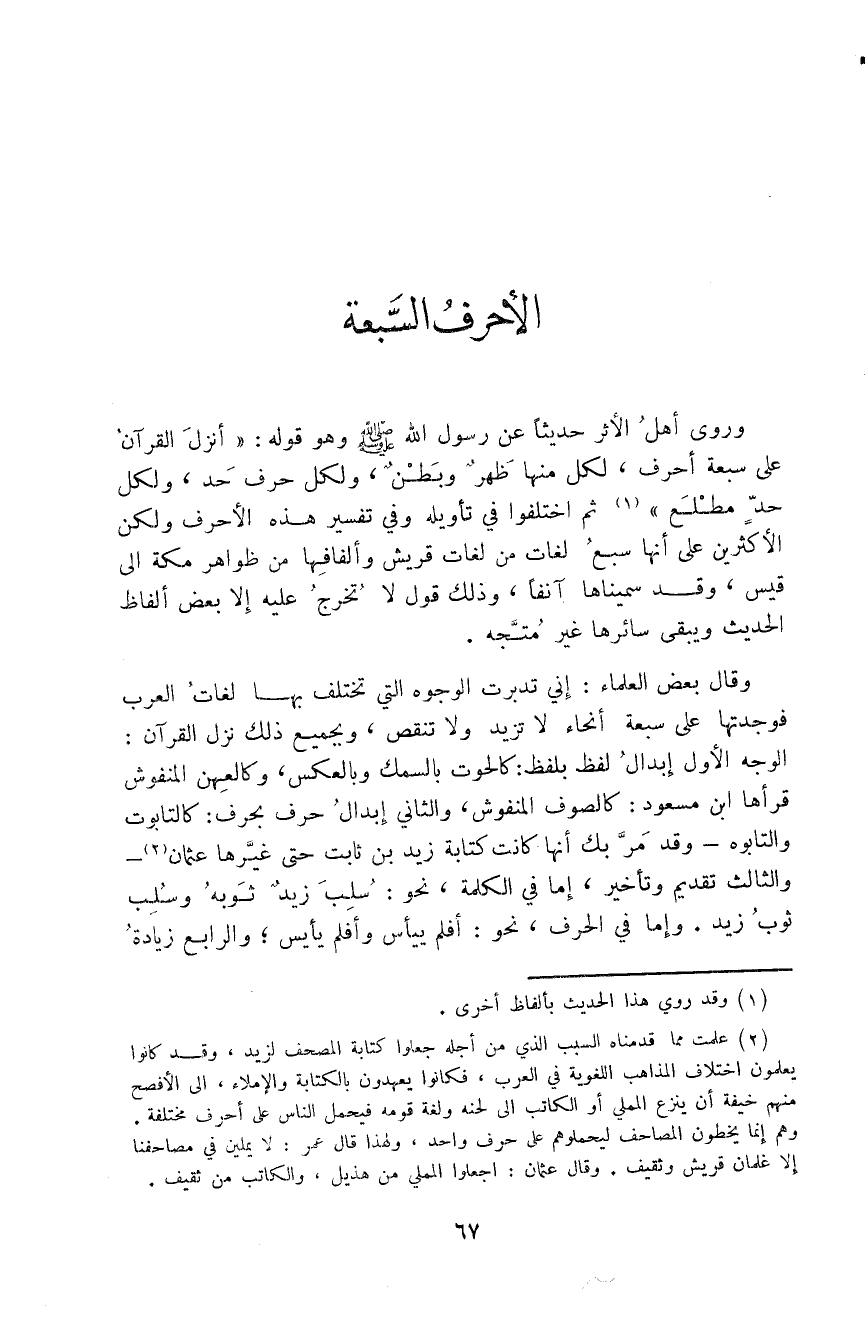 الأحرفُ السَّبعة
وروى أهلُ الأثر حديثاً عن رسول الله ﷺ وهو قوله : « أنزلَ القرآنُ
على سبعة أحرف ، لكل منها ظَهرٌ وبَطْنٌ ، ولكل حرف حَد ، ولكل
حدٍّ مطْلَع » (١) ثم اختلفوا في تأويله وفي تفسير هذه الأحرف ولكن
الأكثرين على أنها سبعُ لغات من لغات قريش وألفافِها من ظواهر مكة الى
قيس ، وقد سميناها آنفاً ، وذلك قول لا تُخرجُ عليه إلا بعض ألفاظ
الحديث ويبقى سائرها غير مُتَّجه .
وقال بعض العلماء : إني تدبرت الوجوه التي تختلف بها لغاتُ العرب
فوجدتها على سبعة أنحاء لا تزيد ولا تنقص ، وبجميع ذلك نزل القرآن :
الوجه الأول إبدالُ لفظ بلفظ:كالحوت بالسمك وبالعكس، وكالعِهن المنفوش
قرأها ابن مسعود : كالصوف المنفوش، والثاني إبدالُ حرف بحرف: كالتابوت
والتابوه – وقد مَرَّ بك أنها كانت كتابة زيد بن ثابت حتى غيَّرها عثمان(٢)–
والثالث تقديم وتأخير ، إما في الكلمة ، نحو : سُلبَ زيدٌ ثوبَهُ وسُلِب
ثوبُ زيد . وإما في الحرف ، نحو : أفلم ييأس وأفلم يأيس ؛ والرابع زيادةُ
(١) وقد روي هذا الحديث بألفاظ أخرى .
(٢) علمت مما قدمناه السبب الذي من أجله جعلوا كتابة المصحف لزيد ، وقد كانوا
يعلمون اختلاف المذاهب اللغوية في العرب ، فكانوا يعهدون بالكتابة والإملاء ، الى الأفصح
منهم خيفة أن ينزع المملي أو الكاتب الى لحنه ولغة قومه فيحمل الناس على أحرف مختلفة .
وهم إنما يخطون المصاحف ليحملوهم على حرف واحد ، ولهذا قال عمر : لا يملين في مصاحفنا
إلا غلمان قريش وثقيف . وقال عثمان : اجعلوا المملي من هذيل ، والكاتب من ثقيف .
٦٧